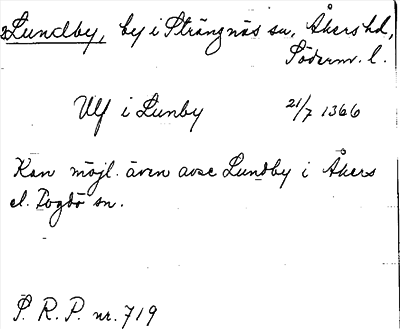 Lundby, by i Strängnäs sn, Åkers hd,
Söderm. l.
Ulf i Lunby 21/7 1366
Kan möjl. även avse Lundby i Åkers
el. Togdö sn.
S. R. P. nr. 719